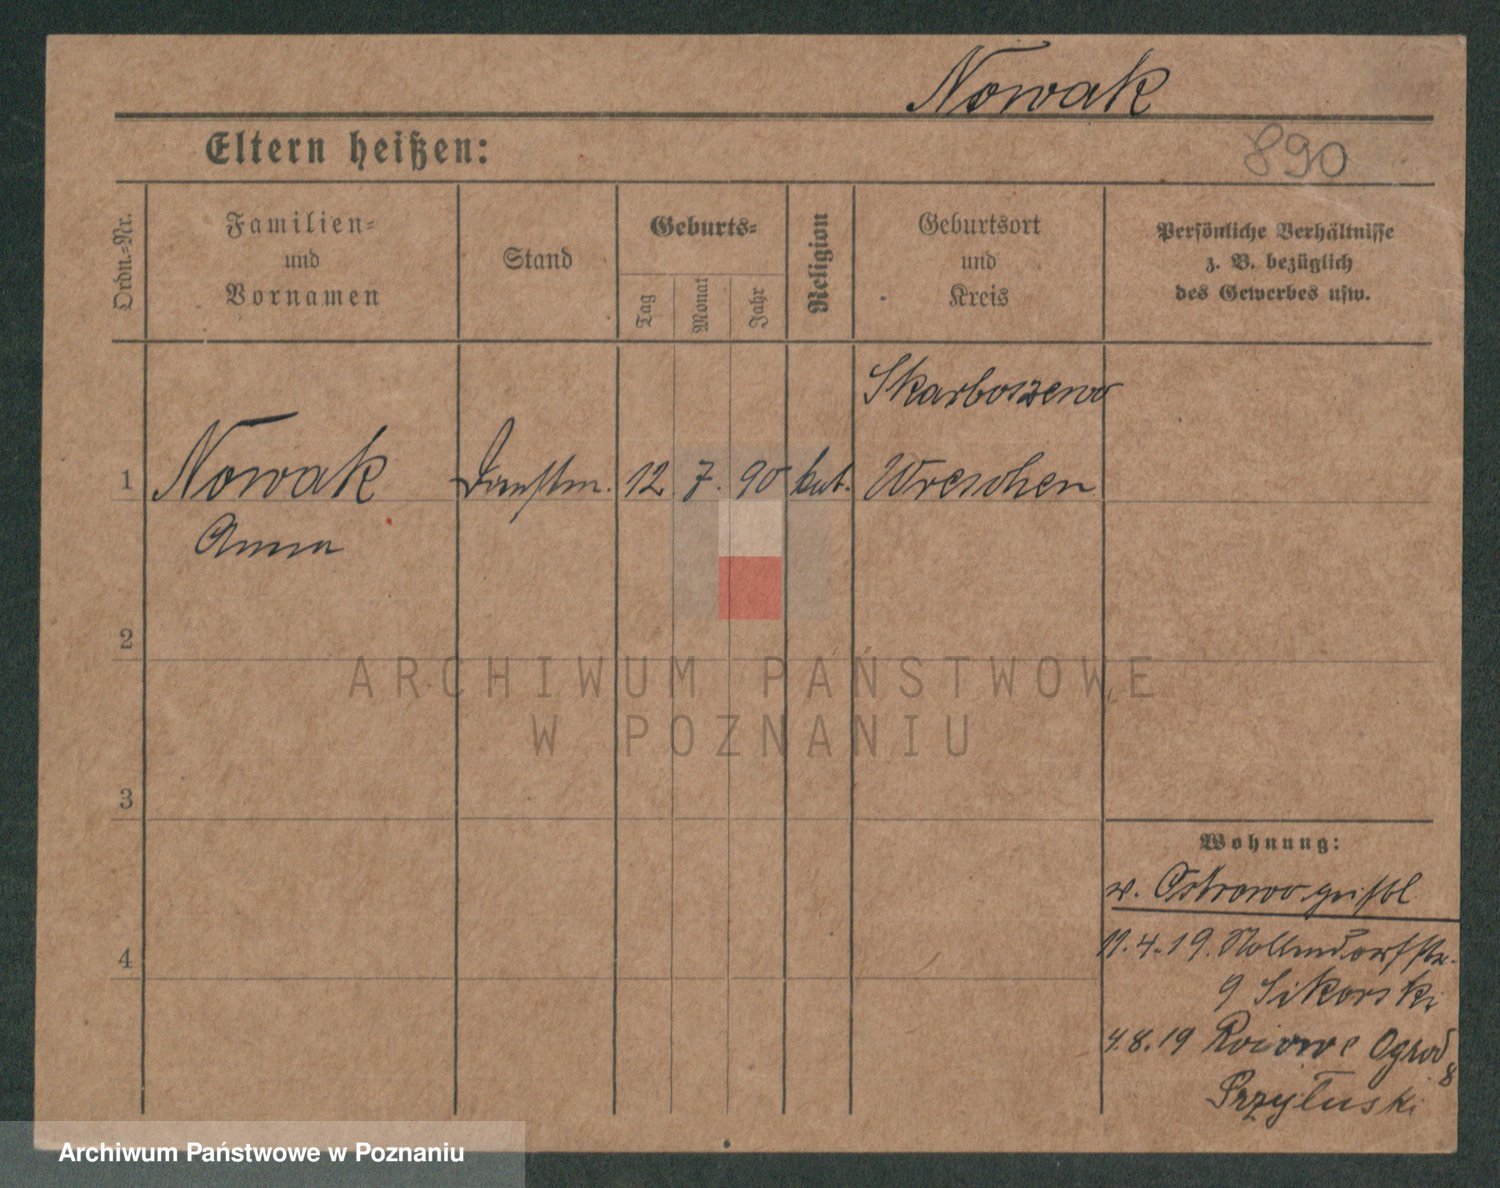 Nowak
Eltern heißen:
890
Ordn.-Nr.
Familien-
und
Vornamen
Stand
Geburts-
Tag
Monat
Jahr
Religion
Geburtsort
und
Kreis
Persönliche Verhältnisse
z. B. bezüglich
des Gewerbes usw.
Skarboszewo
1 Nowak Dienstm. 12. 7. 90 kat. Wreschen
Anna
2
ARCHIWUM PAŃSTWOWE
W POZNANIU
3
Wohnung:
v. Ostrowo
4
11.4.19. Nollendorfstr.
9 Sikorski
4.8.19 Ogrod
8
Przyłuski
Archiwum Państwowe w Poznaniu